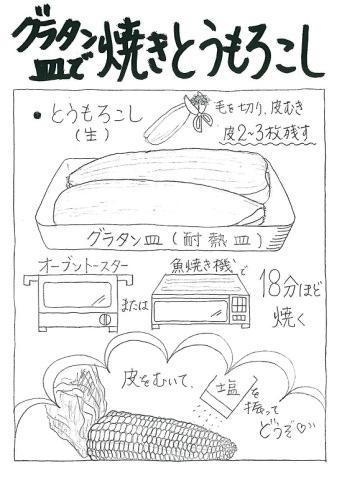 グラタン
皿で焼きとうもろこし
● とうもろこし
(生)
毛を切り、皮むき
皮2~3枚残す
グラタン皿(耐熱皿)
オーブントースター
または
魚焼き機で
18分ほど
焼く
皮をむいて、
塩を
振って
どうぞ♡